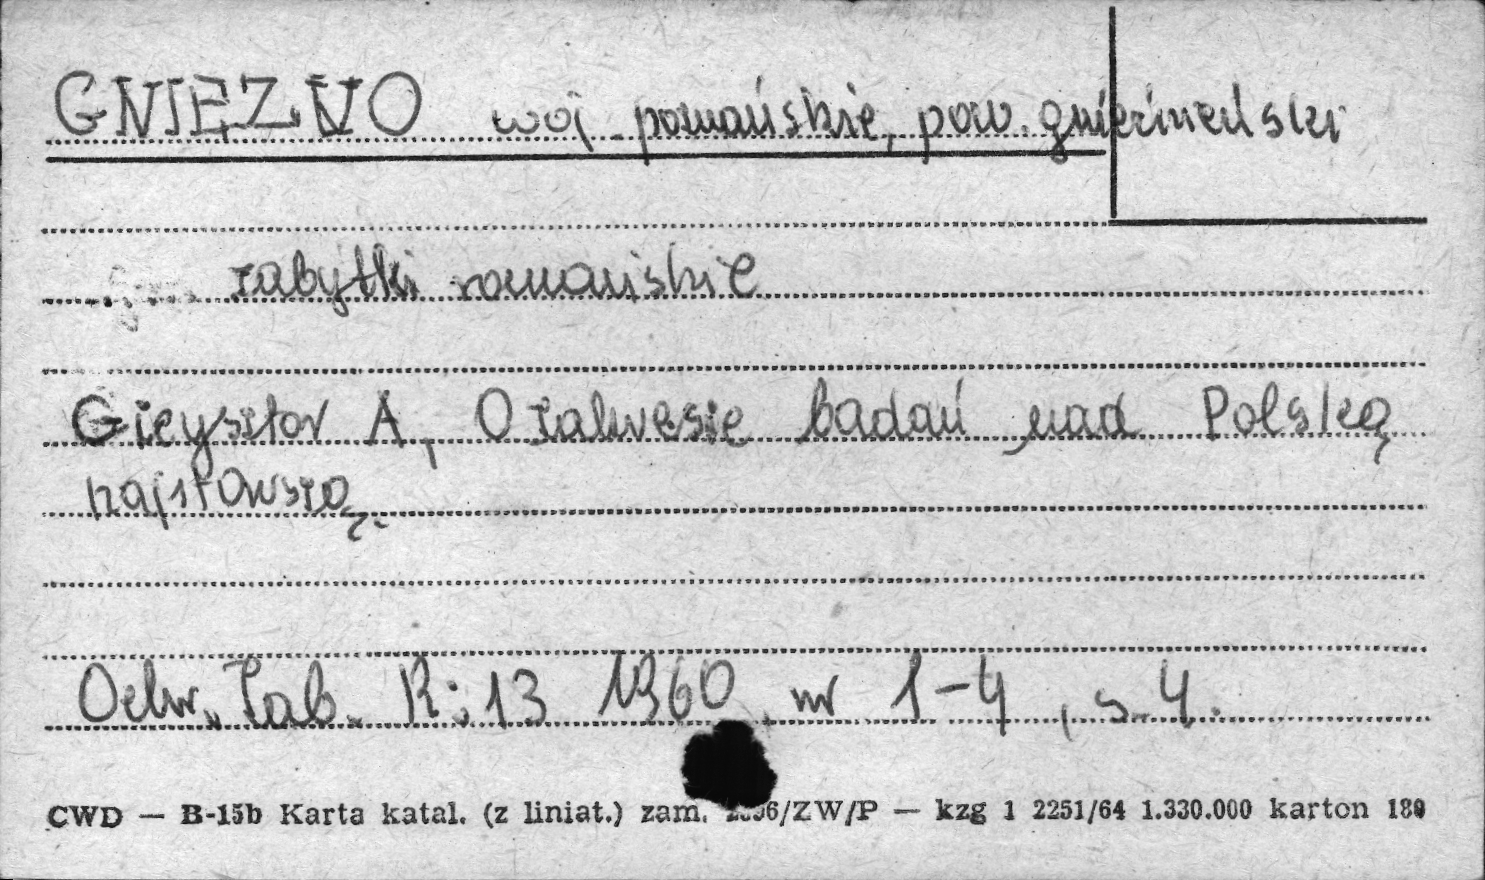 GNIEZNO woj. poznańskie, pow. gnieźnieński
zabytki romańskie
Gieysztor A, O zakresie badań nad Polską
najstarszą.
Ochr. Zab. R: 13 1960, nr 1-4, s. 4.
CWD — B-15b Karta katal. (z liniat.) zam. 96/ZW/P — kzg 1 2251/64 1.330.000 karton 180